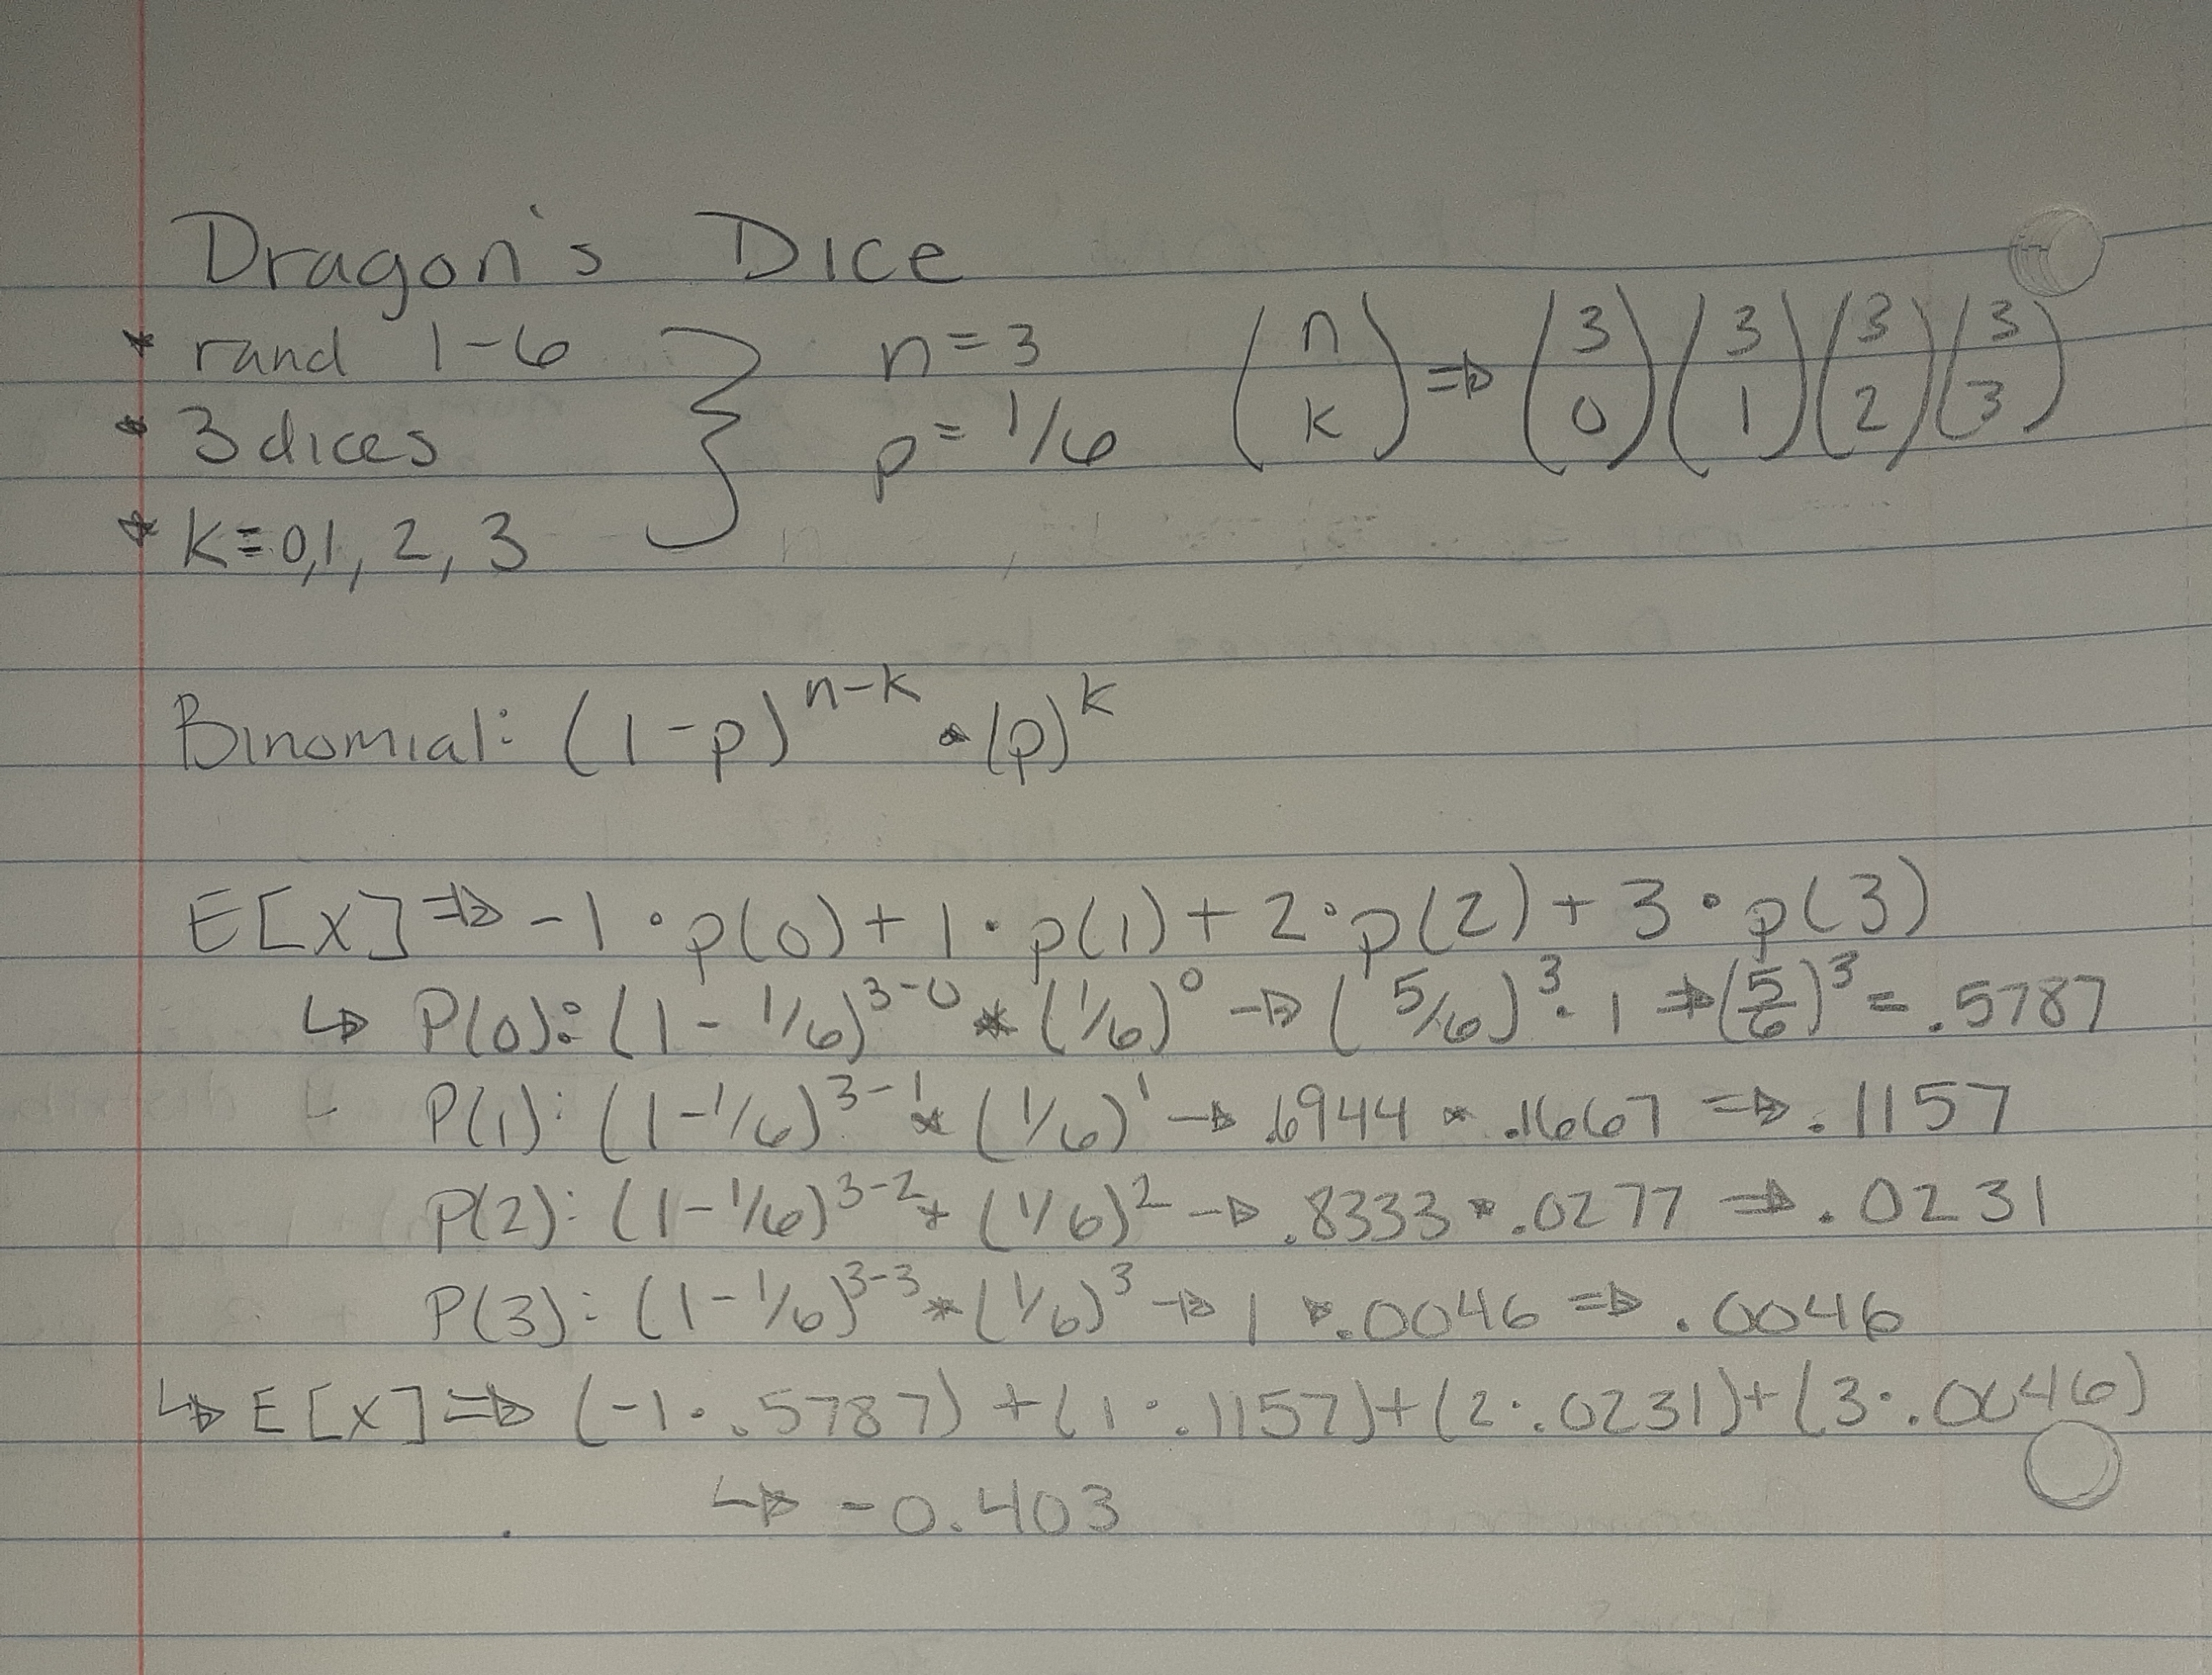 Dragon's Dice
* rand 1-6 } n=3 (n k) ⇒ (3 0)(3 1)(3 2)(3 3)
* 3 dices p=1/6
* k=0,1, 2, 3
Binomial: (1-p)^n-k • (p)^k
E[x] ⇒ -1 • p(0) + 1 • p(1) + 2 • p(2) + 3 • p(3)
↳ P(0): (1 - 1/6)^3-0 * (1/6)^0 → (5/6)^3 • 1 ⇒ (5/6)^3 = .5787
- P(1): (1-1/6)^3-1 * (1/6)^1 → .6944 * .1667 ⇒ .1157
P(2): (1-1/6)^3-2 * (1/6)^2 → .8333 * .0277 ⇒ .0231
P(3): (1-1/6)^3-3 * (1/6)^3 → 1 * .0046 ⇒ .0046
↳ E[x] ⇒ (-1 • .5787) + (1 • .1157) + (2 • .0231) + (3 • .0046)
↳ -0.403